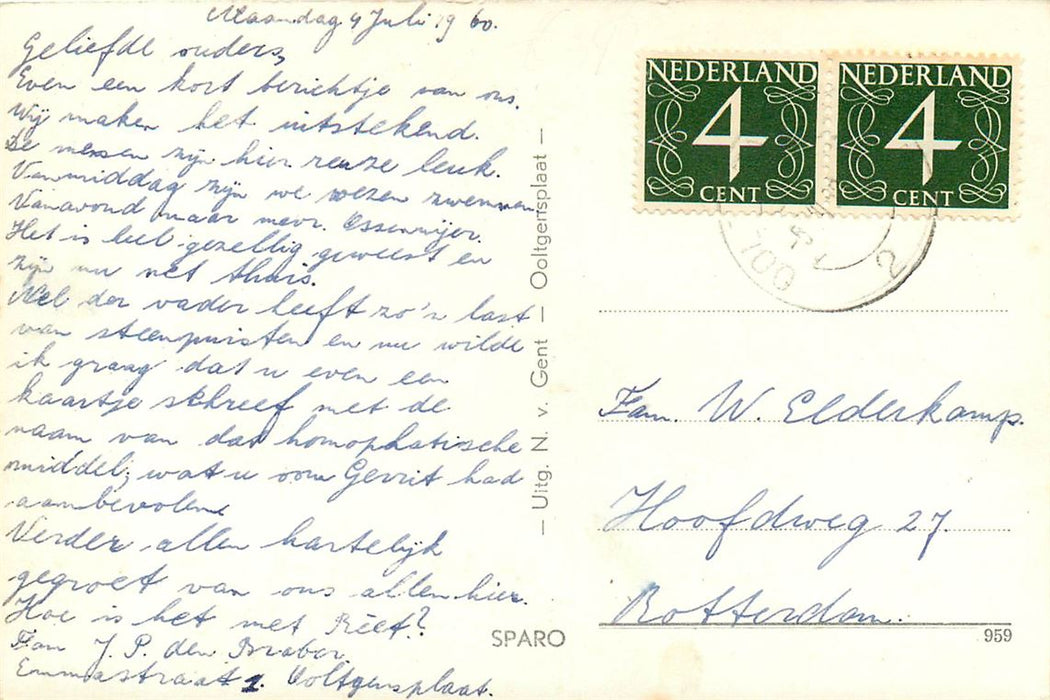 Maandag 4 Juli 1960.
Geliefde ouders,
Even een kort berichtje van ons.
Wij maken het uitstekend.
De mensen zijn hier reuze leuk.
Vanmiddag zijn we wezen zwemmen
Vanavond naar mevr.
Het is heel gezellig geweest en
zijn nu net thuis.
Nel der vader heeft zo'n last
van steenpuisten en nu wilde
ik graag dat u even een
kaartje schreef met de
naam van dat homophatische
middel, wat u oom Gerrit had
aanbevolen
Verder allen hartelijk
gegroet van ons allen hier.
Hoe is het met Riet?
Fam J. P. den Braber
Emmastraat 1. Ooltgensplaat.
— Uitg. N. v. Gent — Ooltgensplaat —
SPARO
NEDERLAND
4
CENT
NEDERLAND
4
CENT
Fam. W. Elderkamp.
Hoofdweg 27.
Rotterdam.
959